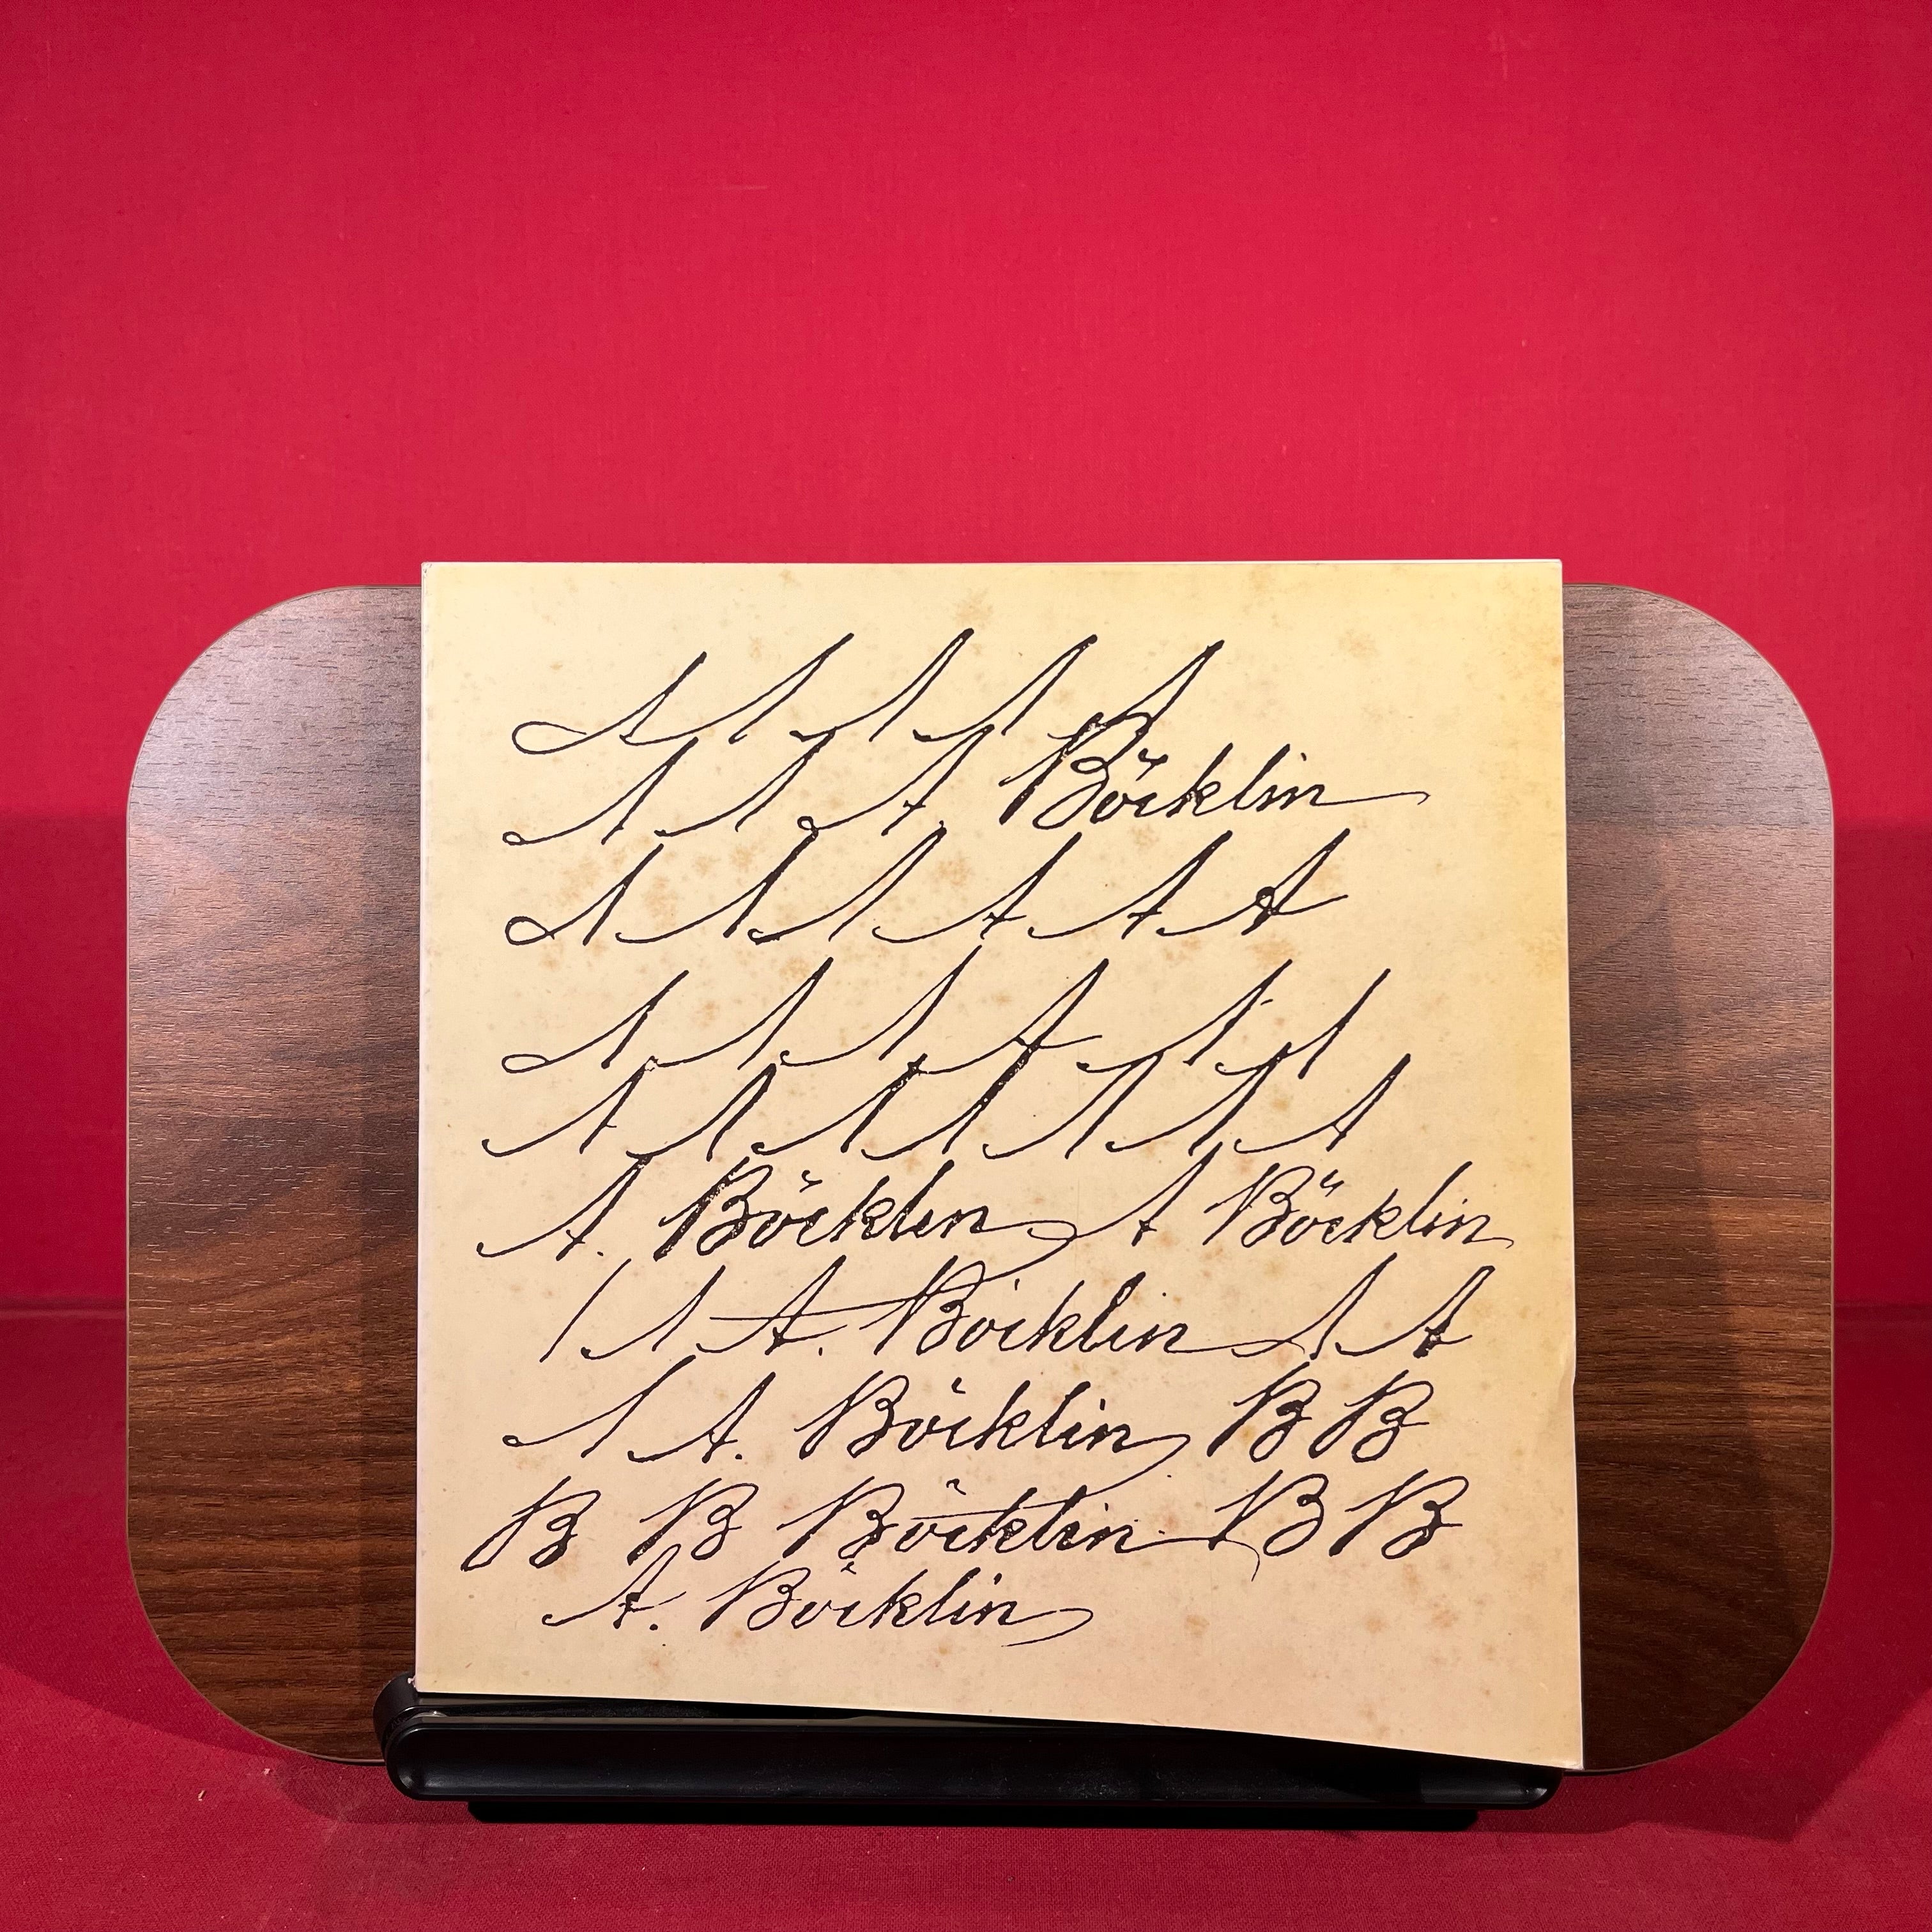 A A A A A
A A A Böcklin
A A A A A A
A A A A A A
A A A A A A A
A. Böcklin A Böcklin
A A. Böcklin A A
A A. Böcklin B B
B B Böcklin B B
A. Böcklin